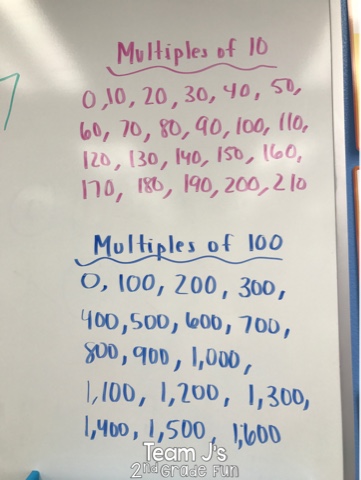 Multiples of 10
0, 10, 20, 30, 40, 50,
60, 70, 80, 90, 100, 110,
120, 130, 140, 150, 160,
170, 180, 190, 200, 210
Multiples of 100
0, 100, 200, 300,
400, 500, 600, 700,
800, 900, 1,000,
1,100, 1,200, 1,300,
1,400, 1,500, 1,600
Team J's
2nd Grade Fun